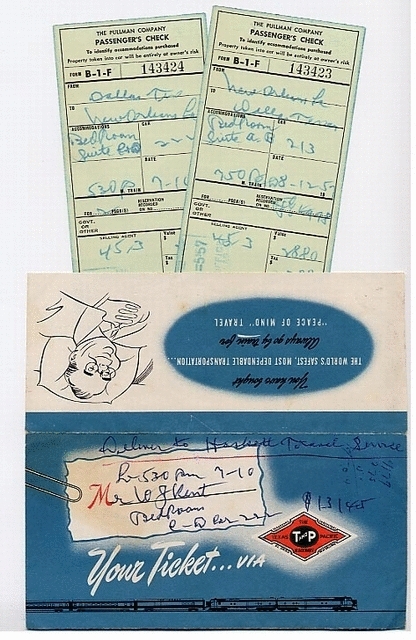 THE PULLMAN COMPANY
PASSENGER'S CHECK
To identify accommodations purchased
Property taken into car will be entirely at owner's risk
FORM B-1-F 143424
FROM
Dallas Tex
TO
New Orleans La
ACCOMMODATIONS CAR
Bedroom
Suite
DATE
530P 7-10
M. TRAIN
FOR RESERVATION RECORDED ON NO.
GOVT. OR OTHER
SELLING AGENT Value $
453
Tax $
THE PULLMAN COMPANY
PASSENGER'S CHECK
To identify accommodations purchased
Property taken into car will be entirely at owner's risk
FORM B-1-F 143423
FROM
New Orleans La
TO
Dallas Texas
ACCOMMODATIONS CAR
Bedroom
Suite 213
DATE
M. TRAIN
FOR RESERVATION RECORDED ON NO.
GOVT. OR OTHER
SELLING AGENT Value $
453 2880
Tax $
You have bought
THE WORLD'S SAFEST, MOST DEPENDABLE TRANSPORTATION...
Always go by train for
"PEACE OF MIND" TRAVEL
Deliver to Haskett Travel Service
Lv 530 PM 7-10
Mr
Bedroom
Car
THE
TEXAS T AND P PACIFIC
RAILWAY
Your Ticket... VIA